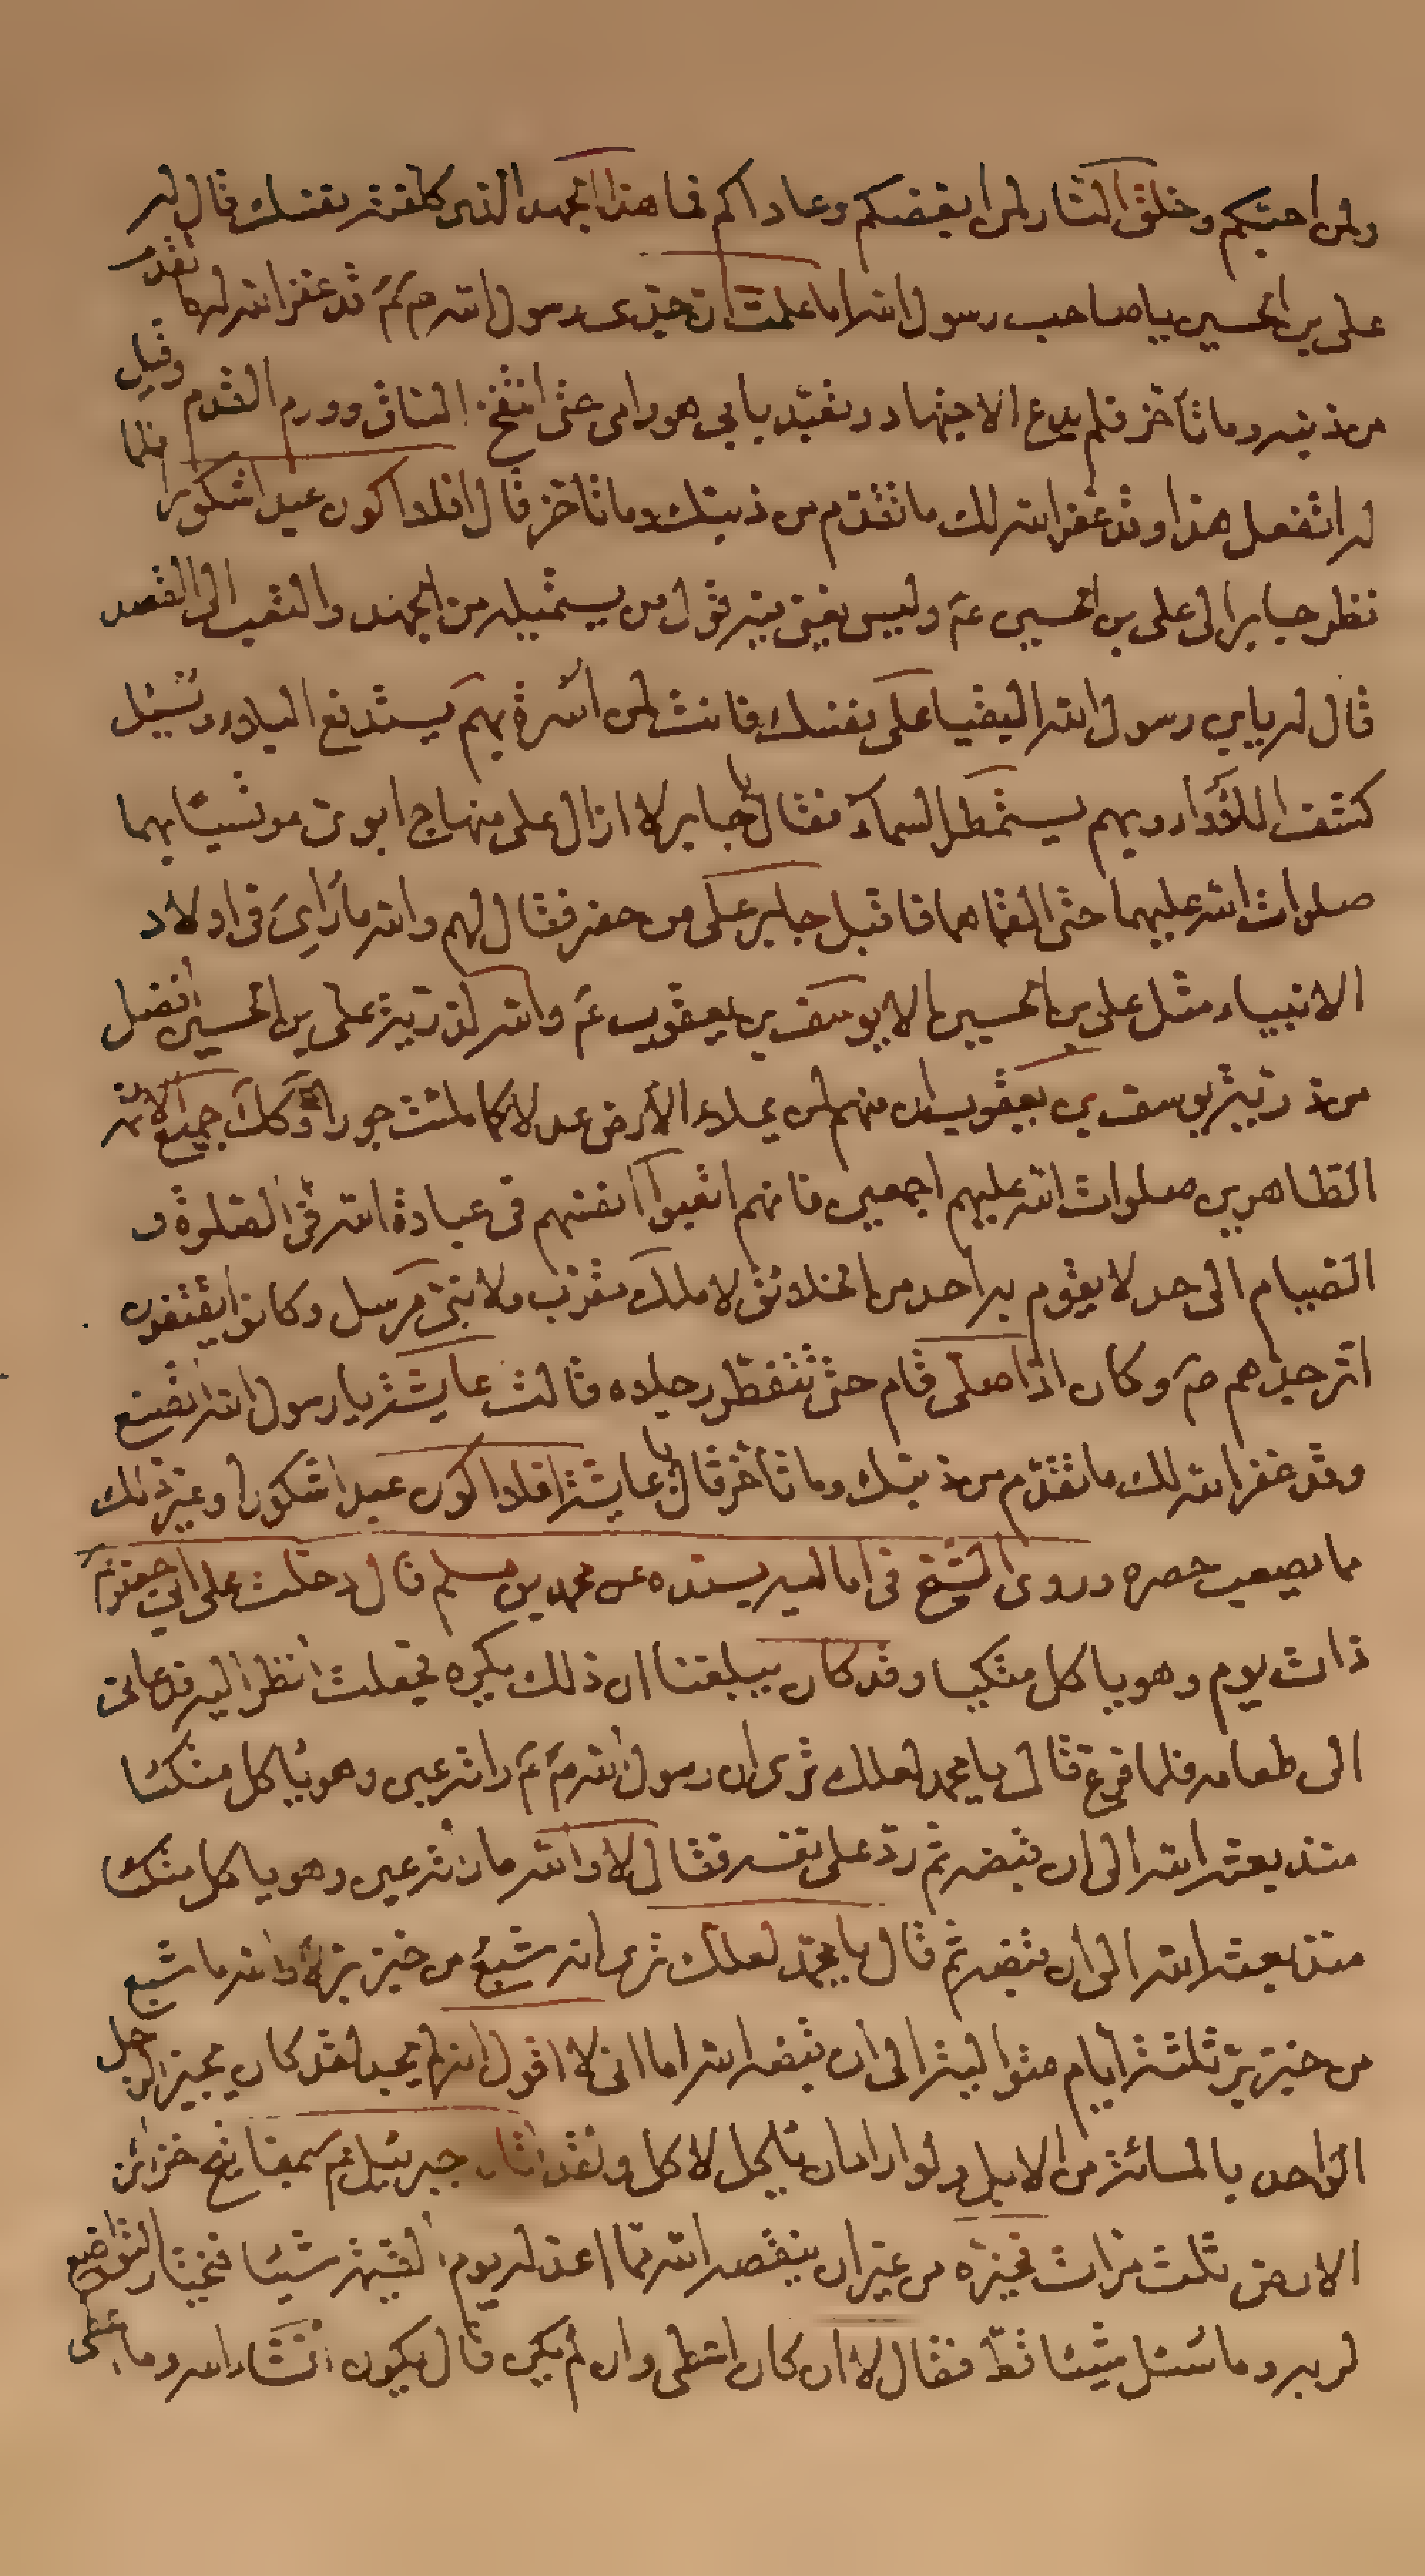 ولمن احبّكم وخلق النار لمن ابغضكم وعاداكم فما هذا الجهد الذى كلفته نفسك قال له
على بن الحسين يا صاحب رسول الله اما علمت ان جدى رسول الله ص م قد غفر الله له ما تقدم
من ذنبه وما تأخر فلم يدع الاجتهاد وتعبّد بابى هو وامى حتى انتفخ الساق وورم القدم وقيل
له اتفعل هذا وقد غفر الله لك ما تقدّم من ذنبك وما تاخر قال افلا اكون عبدا شكورا فلما
نظر جابر الى على بن الحسين عم وليس يغنى فيه قول من يستميله من الجهد والتعب الى القصد
قال له يابن رسول الله البقيا على نفسك فانت لمن اسرة بهم يستدفع البلاء وتسئل
كشف اللأواء وبهم يستمطر السماء فقال يا جابر لا ازال على منهاج ابوى موتسيا بهما
صلوات الله عليهما حتى القاهما فاقبل جابر على من حضر فقال لهم والله ما رأى فى اولاد
الانبياء مثل على بن الحسين الا يوسف بن يعقوب عم والله لذرّية على بن الحسين افضل
من ذرّية يوسف بن يعقوب ان منهم لمن يملاء الأرض عدلا كما ملئت جورا وكك جميع الائمه
الطاهرين صلوات الله عليهم اجمعين فانهم اتعبوا انفسهم فى عبادة الله فى الصلوة و
الصيام الى حد لا يقوم به احد من الخلائق لا ملك مقرّب ولا نبىّ مرسل وكانوا يقتفون
اثر جدهم ص وكان اذا صلى قام حتى تتفطر رجلاه قالت عايشة يا رسول الله اتصنع
وقد غفر الله لك ما تقدّم من ذنبك وما تأخر قال يا عايشة افلا اكون عبدا شكورا وغير ذلك
مما يصعب حصره وروى الشيخ فى اماليه بسنده عن محمد بن مسلم قال دخلت على ابى جعفر عم
ذات يوم وهو ياكل متكيا وقد كان يبلغنا ان ذلك يكره فجعلت انظر اليه فدعانى
الى طعامه فلما فرغ قال يا محمد لعلك ترى ان رسول الله ص م راته عين وهو ياكل متكئا
منذ بعثه الله الى ان قبضه ثم ردّ على نفسه فقال لا والله ما راته عين وهو ياكل متكئا
منذ بعثه الله الى ان قبضه ثم قال يا محمّد لعلك ترى انه شبع من خبز برّ لا والله ما شبع
من خبز برّ ثلثة ايام متوالية الى ان قبضه الله اما انى لا اقول انه لم يجد لقد كان يجيز الرجل
الواحد بالمائة من الابل ولو اراد ان ياكل لاكل ولقد اتاه جبرئيل عم بمفاتيح خزائن
الارض ثلث مرات فخيره من غير ان ينقصه الله مما اعد له يوم القيمة شيئا فيختار التواضع
لربه وما سئل شيئا قط فقال لا ان كان اعطى وان لم يكن قال يكون انشاء الله وما اعطى